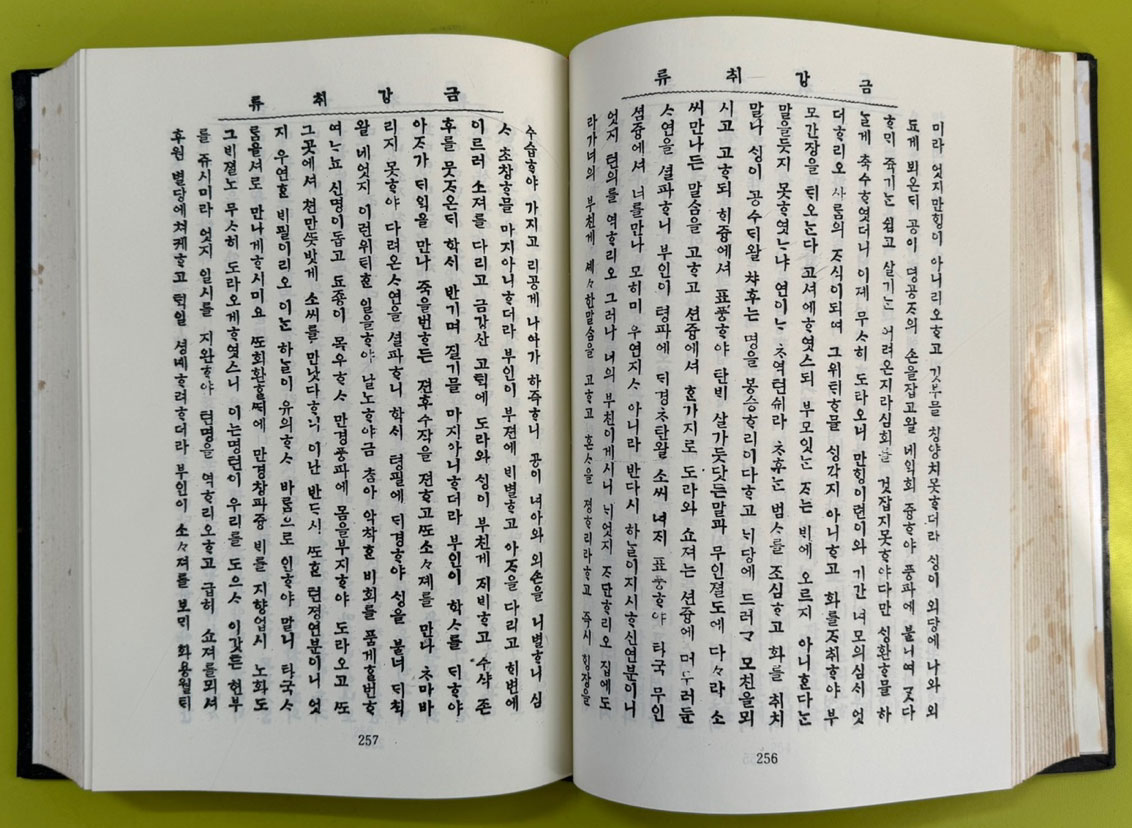 금강취류
미라 엇지만힝이 아니리오ᄒᆞ고 깃부믈 칭양치못ᄒᆞ더라 싱이 외당에 나와 외
됴게 뵈온ᄃᆡ 공이 명공ᄌᆞ의 손을잡고왈 네익회 즁ᄒᆞ야 풍파에 불니여 ᄀᆞᆺ다
ᄒᆞᄆᆡ 쥭기ᄂᆞᆫ 쉽고 살기ᄂᆞᆫ 어려온지라심회를 것잡지못ᄒᆞ야다만 싱환ᄒᆞ믈 하
ᄂᆞᆯ게 축수ᄒᆞ엿더니 이제 무ᄉᆞ히 도라오니 만힝이련이와 기간 너모의심ᄉᆡ 엇
더ᄒᆞ리오 사ᄅᆞᆷ의 ᄌᆞ식이되여 그위ᄐᆡᄒᆞ믈 싱각지 아니ᄒᆞ고 화를ᄌᆞ취ᄒᆞ야 부
모간장을 ᄐᆡ오ᄂᆞᆫ다 고셔에ᄒᆞ엿스되 부모잇ᄂᆞᆫ ᄌᆞ는 ᄇᆡ에 오르지 아니ᄒᆞᆫ다ᄂᆞᆫ
말을듯지 못ᄒᆞ엿ᄂᆞ냐 연이ᄂᆞᆫ ᄎᆞ역텬슈라 ᄎᆞ후ᄂᆞᆫ 범ᄉᆞ를 조심ᄒᆞ고 화를 취치
말나 싱이 공수ᄃᆡ왈 ᄎᆞ후는 명을 봉승ᄒᆞ리이다ᄒᆞ고 ᄂᆡ당에 드러ᄀᆞ 모친을뫼
시고 고ᄒᆞ되 ᄒᆡ즁에셔 표풍ᄒᆞ야 탄ᄇᆡ 살가듯닷든말과 무인졀도에 다々라 소
씨만나든 말ᄉᆞᆷ을 고ᄒᆞ고 션즁에셔 ᄒᆞᆫ가지로 도라와 쇼져는 션즁에 머무러둔
ᄉᆞ연을 셜파ᄒᆞ니 부인이 텽파에 ᄃᆡ경ᄎᆞ탄왈 소씨 녀ᄌᆡ 표풍ᄒᆞ야 타국 무인
셤즁에셔 너를만나 모히미 우연지ᄉᆞ 아니라 반다시 하ᄂᆞᆯ이지시ᄒᆞ신연분이니
엇지 텬의를 역ᄒᆞ리오 그러나 너의 부친이게시니 ᄂᆡ엇지 ᄌᆞ단ᄒᆞ리오 집에도
라가녀의 부친게 셰々ᄒᆞᆫ말ᄉᆞᆷ을 고ᄒᆞ고 혼ᄉᆞ을 졍ᄒᆞ리라ᄒᆞ고 즉시 힝장을
256
금강취류
수습ᄒᆞ야 가지고 리공게 나아가 하즉ᄒᆞ니 공이 녀아와 외손을 니별ᄒᆞ니 심
ᄉᆞ 초창ᄒᆞ믈 마지아니ᄒᆞ더라 부인이 부젼에 ᄇᆡ별ᄒᆞ고 아ᄌᆞ을 다리고 ᄒᆡ변에
이르러 소져를 다리고 금강산 고ᄐᆡᆨ에 도라와 싱이 부친게 저ᄇᆡᄒᆞ고 수샥 존
후를 뭇ᄌᆞ온ᄃᆡ 학ᄉᆡ 반기며 질기믈 마지아니ᄒᆞ더라 부인이 학ᄉᆞ를 ᄃᆡᄒᆞ야
아ᄌᆞ가 ᄃᆡ익을 만나 죽을번ᄒᆞ든 젼후수작을 젼ᄒᆞ고ᄯᅩ소々졔를 만나 ᄎᆞ마바
리지 못ᄒᆞ야 다려온ᄉᆞ연을 셜파ᄒᆞ니 학ᄉᆡ 텽필에 ᄃᆡ경ᄒᆞ야 싱을 불녀 ᄃᆡᄎᆡᆨ
왈 네엇지 이런위ᄐᆡᄒᆞᆫ 일을ᄒᆞ야 날노ᄒᆞ야금 ᄎᆞᆷ아 악착ᄒᆞᆫ 비회를 품게ᄒᆞᆯ번ᄒᆞ
여ᄂᆞ뇨 신명이돕고 됴종이 목우ᄒᆞᄉᆞ 만경풍파에 몸을부지ᄒᆞ야 도라오고 ᄯᅩ
그곳에셔 쳔만ᄯᅳᆺ밧게 소씨를 만낫다ᄒᆞ니 이난 반드시 ᄯᅩᄒᆞᆫ 텬졍연분이니 엇
지 우연ᄒᆞᆫ ᄇᆡ필이리오 이ᄂᆞᆫ 하ᄂᆞᆯ이 유의ᄒᆞᄉᆞ 바ᄅᆞᆷ으로 인ᄒᆞ야 말니 타국ᄉᆞ
ᄅᆞᆷ을셔로 만나게ᄒᆞ시미요 ᄯᅩ회환ᄒᆞᆯᄯᅢ에 만경창파즁 ᄇᆡ를 지향업시 노화도
그ᄇᆡ졀노 무ᄉᆞ히 도라오게ᄒᆞ엿스니 이는명텬이 우리를 도으ᄉᆞ 이갓튼 현부
를 쥬시미라 엇지 일시를 지완ᄒᆞ야 텬명을 역ᄒᆞ리오ᄒᆞ고 급히 쇼져를뫼셔
후원 별당에쳐케ᄒᆞ고 ᄐᆡᆨ일 셩녜ᄒᆞ려ᄒᆞ더라 부인이 소々져를 보ᄆᆡ 화용월ᄐᆡ
257